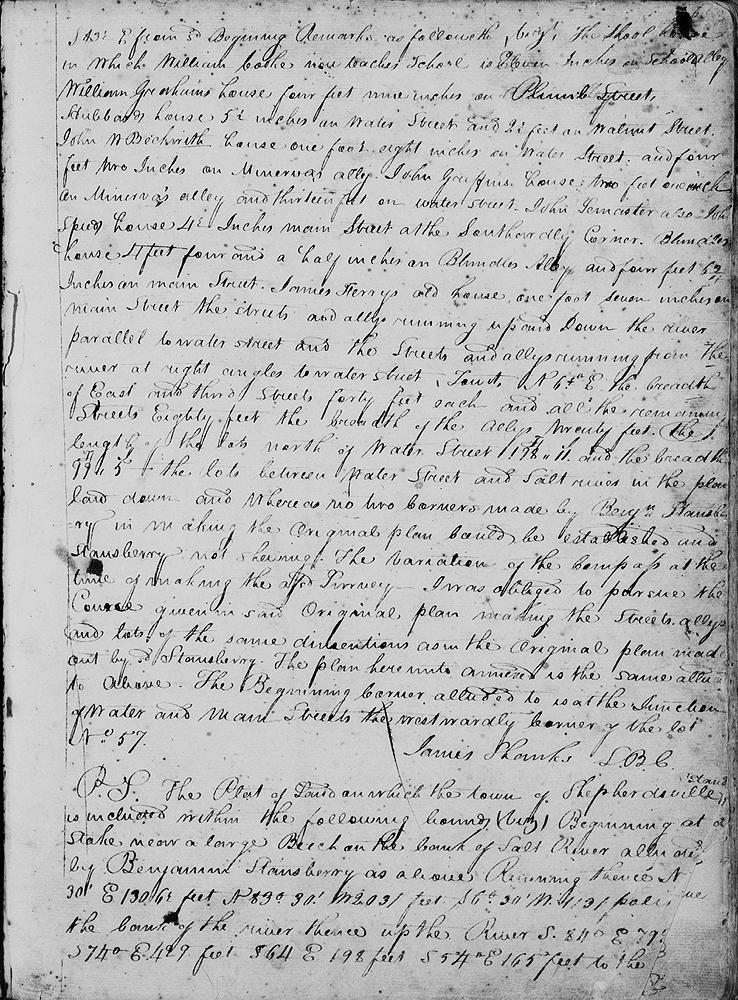 S 83½ E from sd Begining Remarks as followeth, (viz), The Shool house
in which William Cooke now teaches School is Eleven Inches on School alley
William Grahams house four feet nine inches on Plumb Street,
Stubbards house 5½ inches on Water Street and 2½ feet on Walnut Street.
John W Beckwith house one foot eight inches on Water Street. and four
feet two Inches on Minervas alley. John Griffins house two feet one inch
on Minervas alley and thirteen feet on water street. John Lemaster also John
Speed house 4½ Inches main Street at the Southwardly Corner.
house 4 feet four and a half inches on Blundles Alley and four feet
Inches on main Street. James Ferrys old house one foot seven inches on
main Street the streets and allys running up and Down the river
parallel to water street and the Streets and allys running from The
river at right angles to water street, Towit, N 6½° E the breadth
of East and third Streets forty feet each and all the remaining
Streets Eighty feet the breadth of the allys twenty feet. the
length of the lots north of Water Street 198 " 11. and the breadth
99 " 5 the lots between Water Street and Salt river in the plan
laid down and Whereas no two corners made by Benjn Stansbe
-ry in making the Original plan could be established and
Stansberry not shewing The Variation of the compass at the
time of making the afsd Survey I was obliged to persue the
Course given in said Original plan making the Streets allys
and lots of the same dimentions as in the Original plan made
out by sd Stansberry. The plan hereunto annexed is the same allu
to above. The Beginning Corner alluded to is at the Junction
of Water and Main Streets the westwardly corner of the lot
No 57.
James Shanks S.B.C.
P.S. The Plat of Land on which the town of Shepherdsville stands
is included within the following bounds (viz) Beginning at a
Stake near a large Beech on the bank of Salt River
by Benjamin Stansberry as above Running thence N
30' E 1306½ feet N 83° 30' W 2031 feet S 6° 30' W poles
the bank of the river thence up the River S. 84° E 79
S 74° E 429 feet S 64 E 198 feet S 54° E 165 feet to the